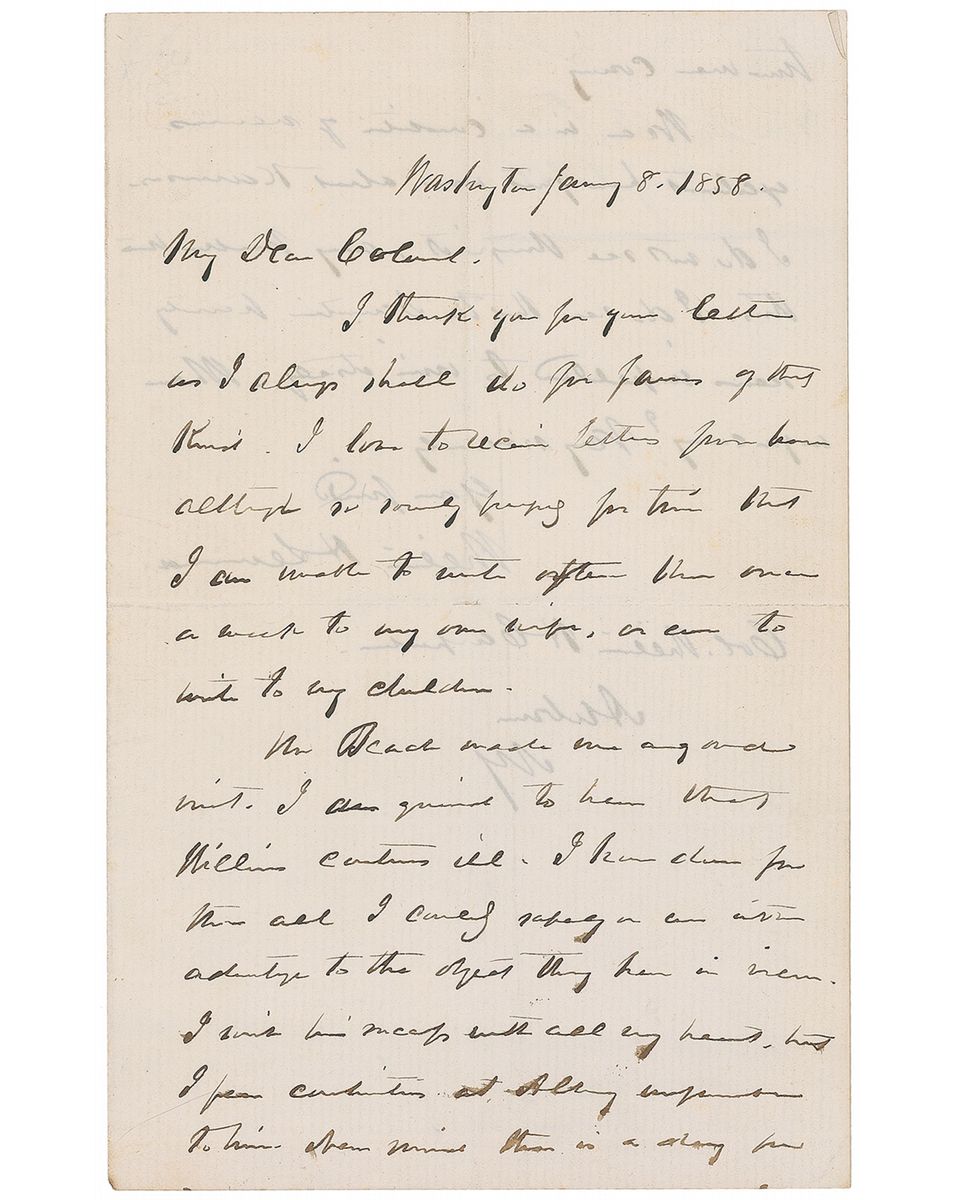 Washington January 8. 1858.
My Dear Colonel.
I thank you for your letter
as I always shall do for favors of that
Kind. I love to receive letters from home
although so sorely pressed for time that
I am unable to write oftener than once
a week to my own wife, or even to
write to my children.
Mr Beach made me a good
visit. I am grieved to hear that
Willius continues ill. I have done for
them all I could safely or even with
advantage to the object they have in view.
I wish him success with all my heart, but
I fear at Albany
to him. there is a for